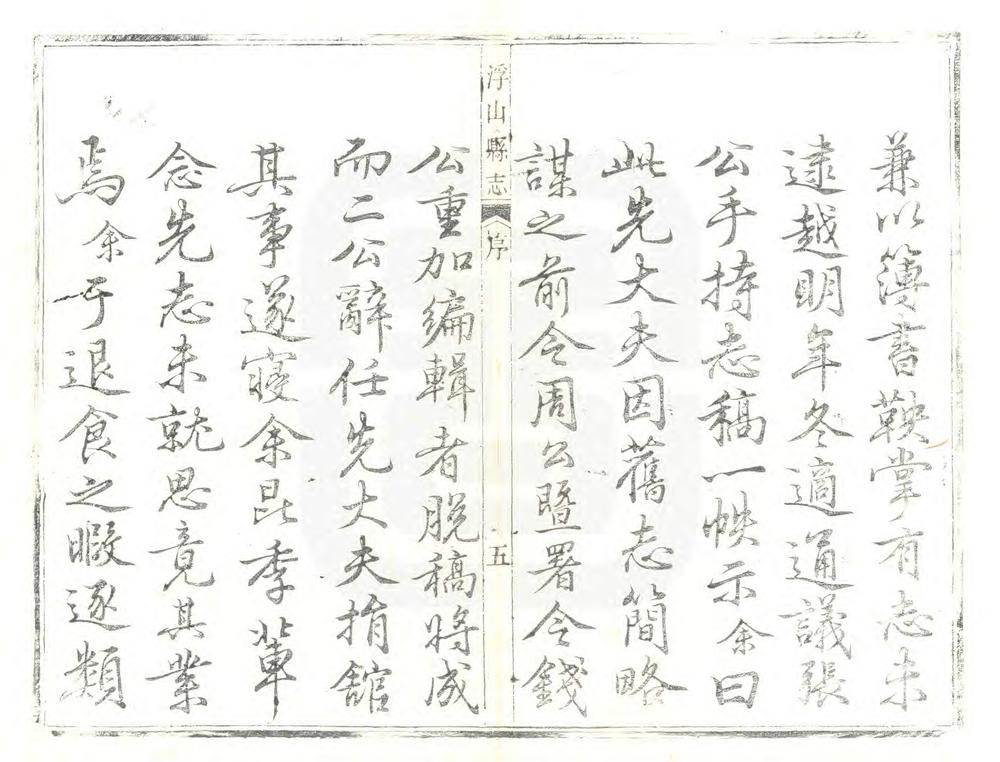 兼以簿書鞅掌有志未
逮越明年冬適通議張
公手持志稿一帙示余曰
此先大夫因舊志簡略
謀之前令周公暨署令錢
浮山縣志
序
五
公重加編輯者脫稿將成
而二公辭任先大夫捐館
其事遂寢余昆季輩
念先志未就思竟其業
焉余于退食之暇逐類